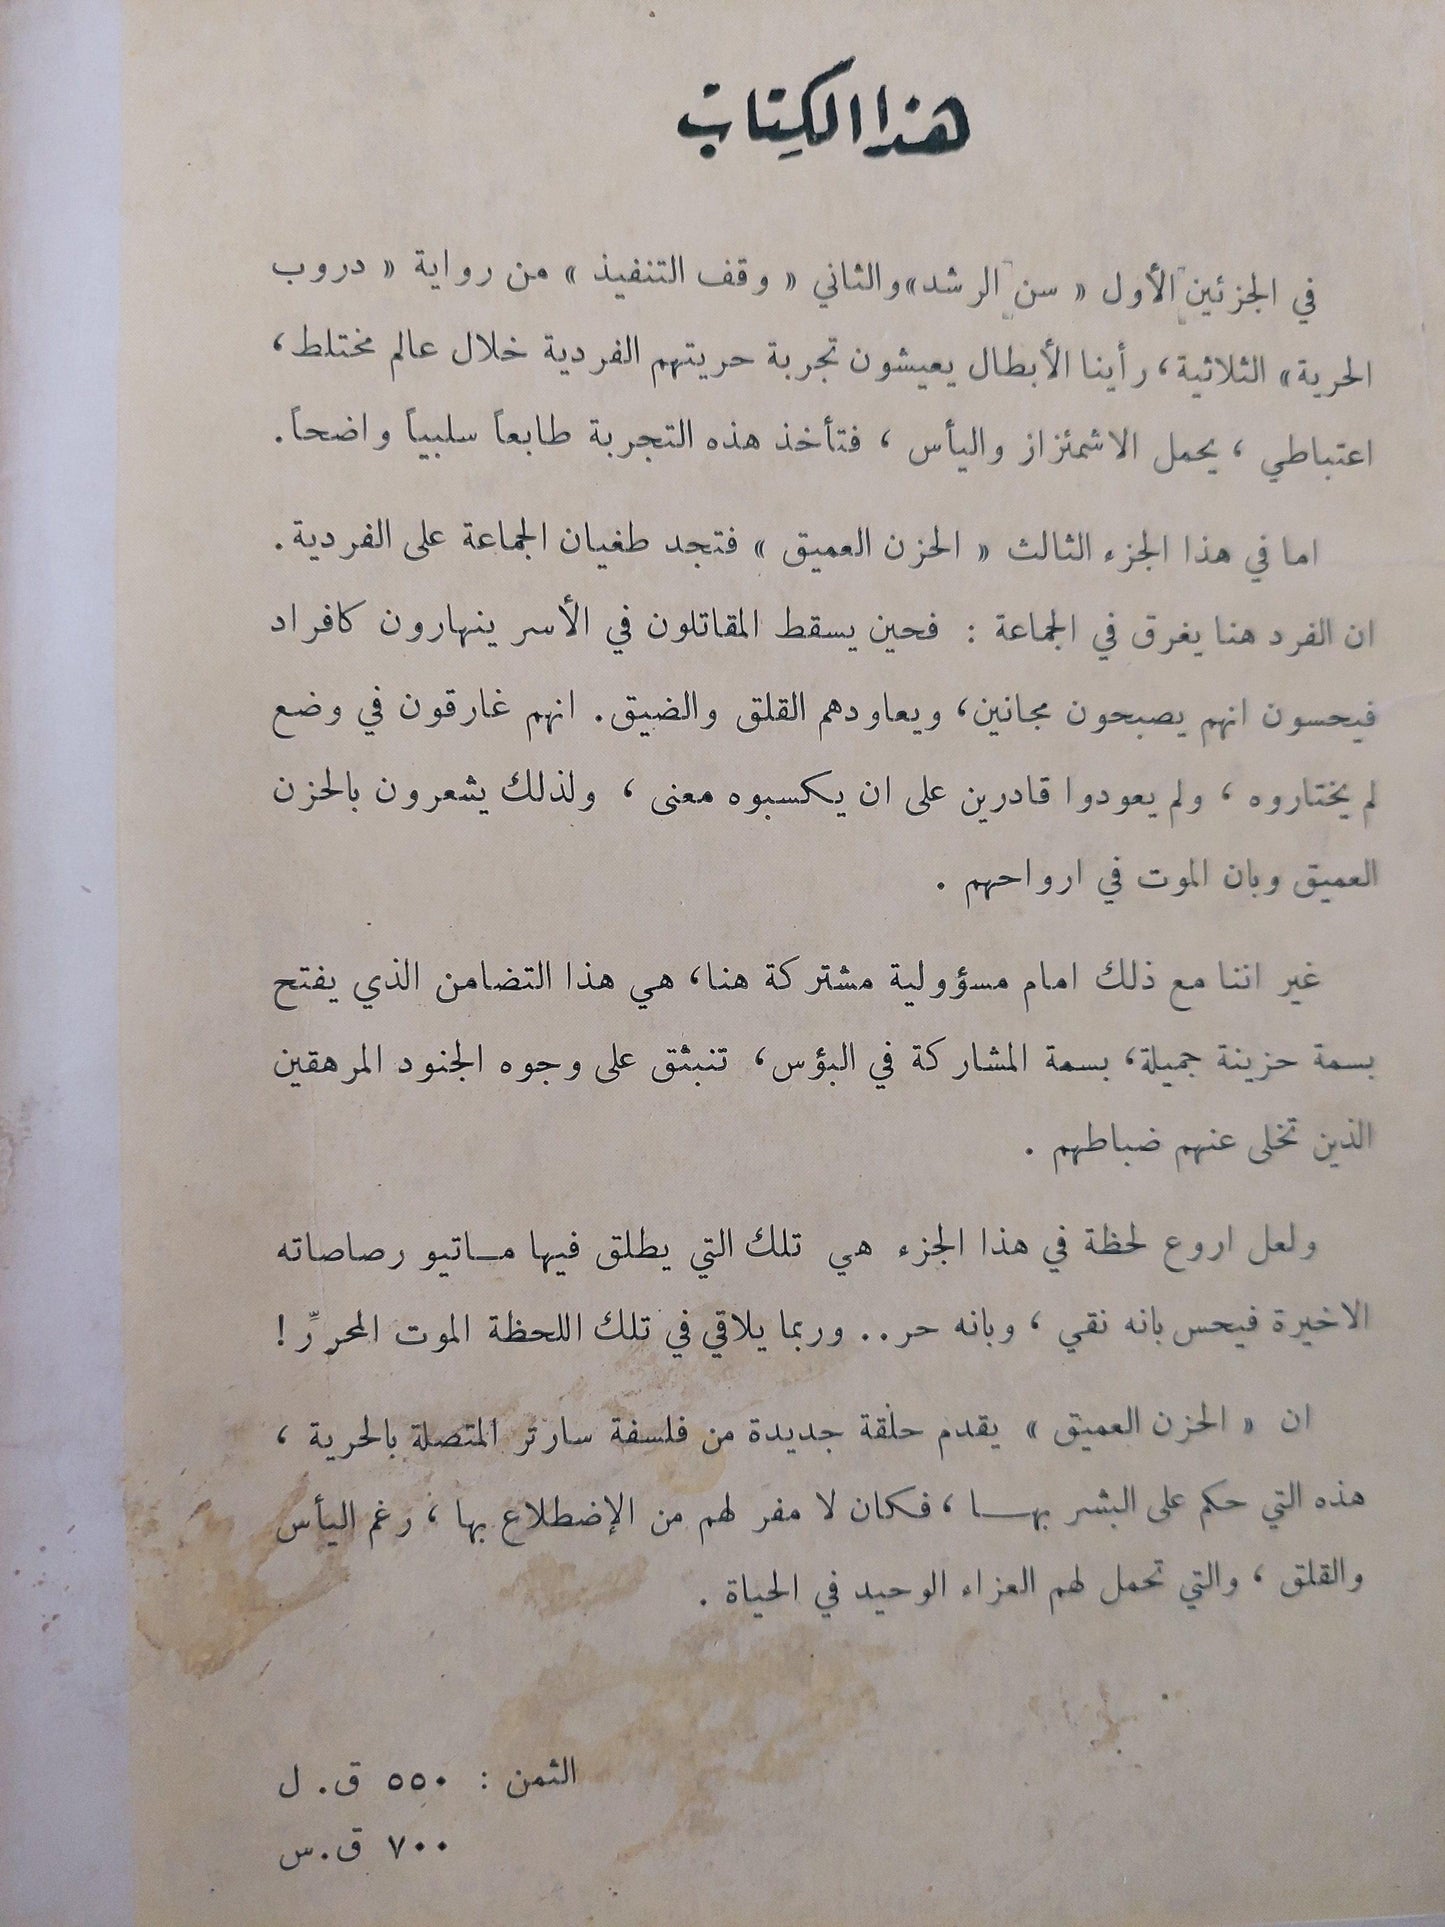 هذا الكتاب
في الجزئين الأول « سن الرشد» والثاني « وقف التنفيذ » من رواية « دروب
الحرية» الثلاثية، رأينا الأبطال يعيشون تجربة حريتهم الفردية خلال عالم مختلط،
اعتباطي ، يحمل الاشمئزاز واليأس ، فتأخذ هذه التجربة طابعاً سلبياً واضحاً.
اما في هذا الجزء الثالث « الحزن العميق » فتجد طغيان الجماعة على الفردية.
ان الفرد هنا يغرق في الجماعة : فحين يسقط المقاتلون في الأسر ينهارون كافراد
فيحسون انهم يصبحون مجانين، ويعاودهم القلق والضيق. انهم غارقون في وضع
لم يختاروه ، ولم يعودوا قادرين على ان يكسبوه معنى ، ولذلك يشعرون بالحزن
العميق وبان الموت في ارواحهم .
غير اننا مع ذلك امام مسؤولية مشتركة هنا، هي هذا التضامن الذي يفتح
بسمة حزينة جميلة، بسمة المشاركة في البؤس، تنبثق على وجوه الجنود المرهقين
الذين تخلى عنهم ضباطهم .
ولعل اروع لحظة في هذا الجزء هي تلك التي يطلق فيها مـاتيو رصاصاته
الاخيرة فيحس بانه نقي ، وبانه حر.. وربما يلاقي في تلك اللحظة الموت المحرِّر !
ان « الحزن العميق » يقدم حلقة جديدة من فلسفة سارتر المتصلة بالحرية ،
هذه التي حكم على البشر بهـا ، فكان لا مفر لهم من الإضطلاع بها ، رغم اليأس
والقلق ، والتي تحمل لهم العزاء الوحيد في الحياة .
الثمن : ٥٥٠ ق. ل
٧٠٠ ق.س